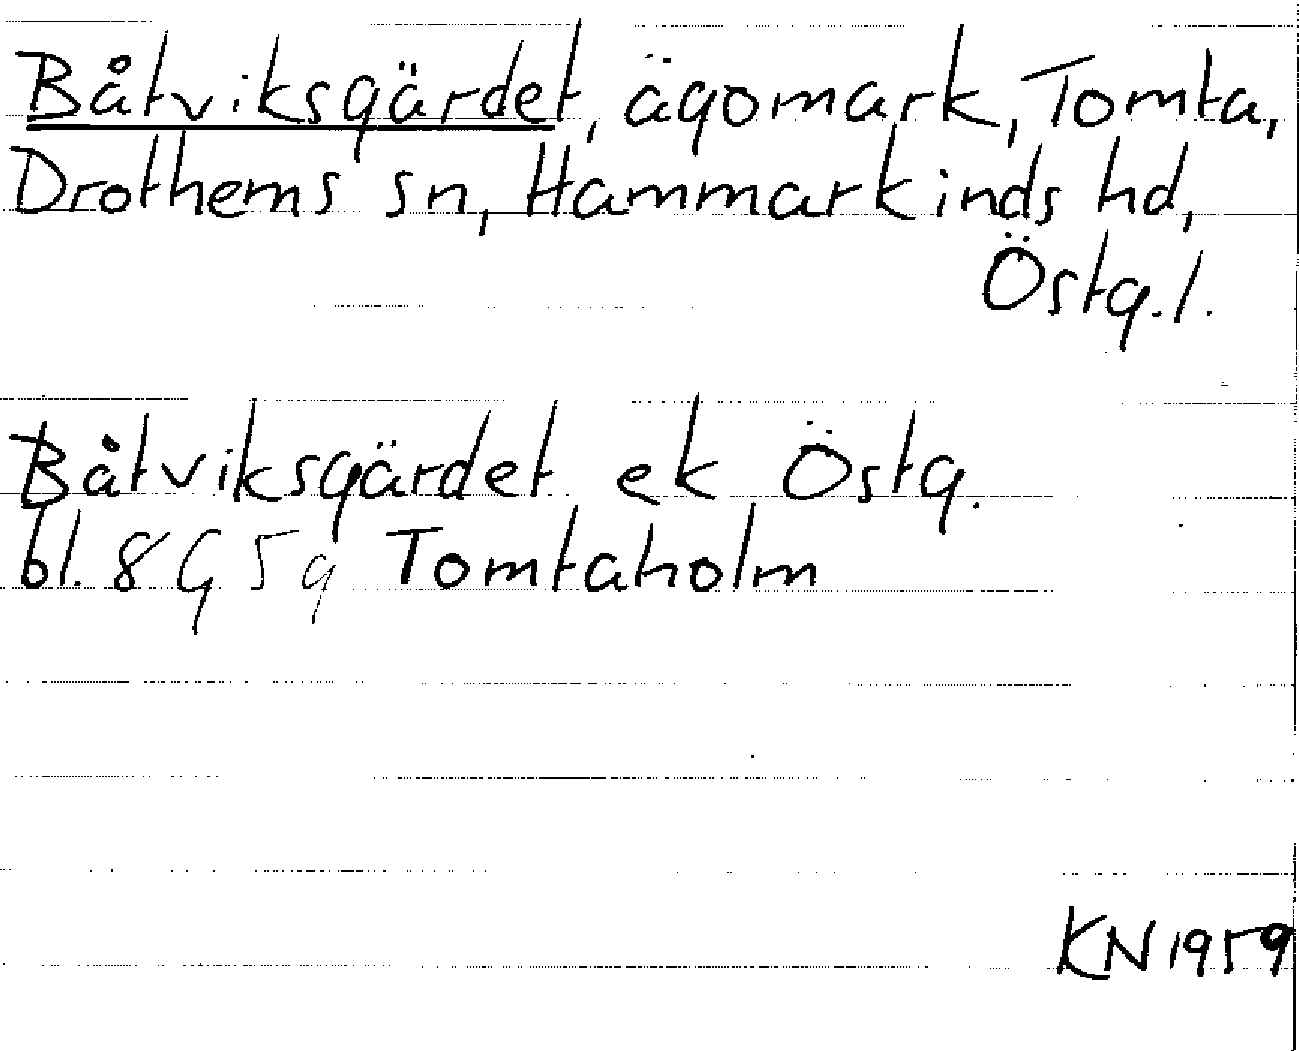 Båtviksgärdet, ägomark, Tomta,
Drothems sn, Hammarkinds hd,
Östg.l.
Båtviksgärdet ek Östg.
bl. 8G 5g Tomtaholm
KN 1959